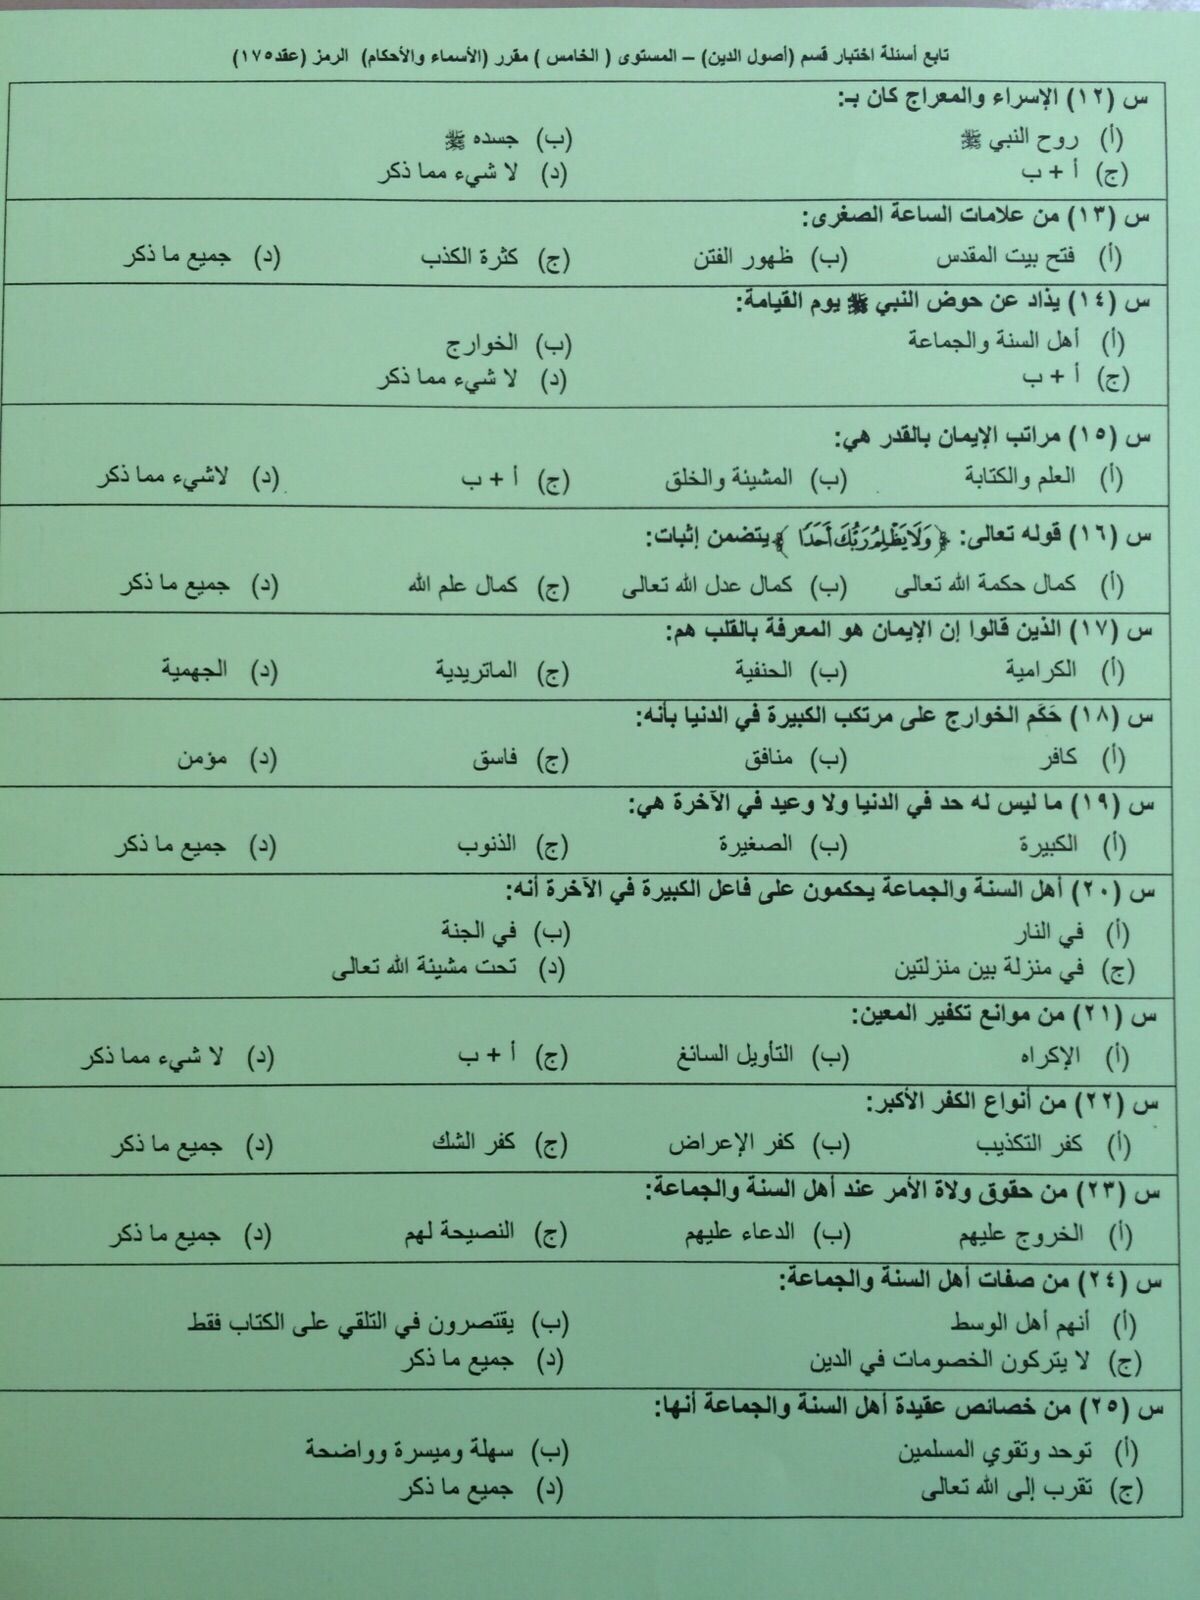 تابع أسئلة اختبار قسم (أصول الدين) – المستوى ( الخامس ) مقرر (الأسماء والأحكام) الرمز (عقد١٧٥)
س (١٢) الإسراء والمعراج كان بـ:
(أ) روح النبي ﷺ (ب) جسده ﷺ
(ج) أ + ب (د) لا شيء مما ذكر
س (١٣) من علامات الساعة الصغرى:
(أ) فتح بيت المقدس (ب) ظهور الفتن (ج) كثرة الكذب (د) جميع ما ذكر
س (١٤) يذاد عن حوض النبي ﷺ يوم القيامة:
(أ) أهل السنة والجماعة (ب) الخوارج
(ج) أ + ب (د) لا شيء مما ذكر
س (١٥) مراتب الإيمان بالقدر هي:
(أ) العلم والكتابة (ب) المشيئة والخلق (ج) أ + ب (د) لاشيء مما ذكر
س (١٦) قوله تعالى: ﴿وَلَا يَظْلِمُ رَبُّكَ أَحَدًا ﴾ يتضمن إثبات:
(أ) كمال حكمة الله تعالى (ب) كمال عدل الله تعالى (ج) كمال علم الله (د) جميع ما ذكر
س (١٧) الذين قالوا إن الإيمان هو المعرفة بالقلب هم:
(أ) الكرامية (ب) الحنفية (ج) الماتريدية (د) الجهمية
س (١٨) حَكَم الخوارج على مرتكب الكبيرة في الدنيا بأنه:
(أ) كافر (ب) منافق (ج) فاسق (د) مؤمن
س (١٩) ما ليس له حد في الدنيا ولا وعيد في الآخرة هي:
(أ) الكبيرة (ب) الصغيرة (ج) الذنوب (د) جميع ما ذكر
س (٢٠) أهل السنة والجماعة يحكمون على فاعل الكبيرة في الآخرة أنه:
(أ) في النار (ب) في الجنة
(ج) في منزلة بين منزلتين (د) تحت مشيئة الله تعالى
س (٢١) من موانع تكفير المعين:
(أ) الإكراه (ب) التأويل السائغ (ج) أ + ب (د) لا شيء مما ذكر
س (٢٢) من أنواع الكفر الأكبر:
(أ) كفر التكذيب (ب) كفر الإعراض (ج) كفر الشك (د) جميع ما ذكر
س (٢٣) من حقوق ولاة الأمر عند أهل السنة والجماعة:
(أ) الخروج عليهم (ب) الدعاء عليهم (ج) النصيحة لهم (د) جميع ما ذكر
س (٢٤) من صفات أهل السنة والجماعة:
(أ) أنهم أهل الوسط (ب) يقتصرون في التلقي على الكتاب فقط
(ج) لا يتركون الخصومات في الدين (د) جميع ما ذكر
س (٢٥) من خصائص عقيدة أهل السنة والجماعة أنها:
(أ) توحد وتقوي المسلمين (ب) سهلة وميسرة وواضحة
(ج) تقرب إلى الله تعالى (د) جميع ما ذكر